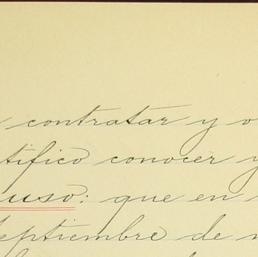 contratar y o
tifico conocer y
uso: que en
eptiembre de